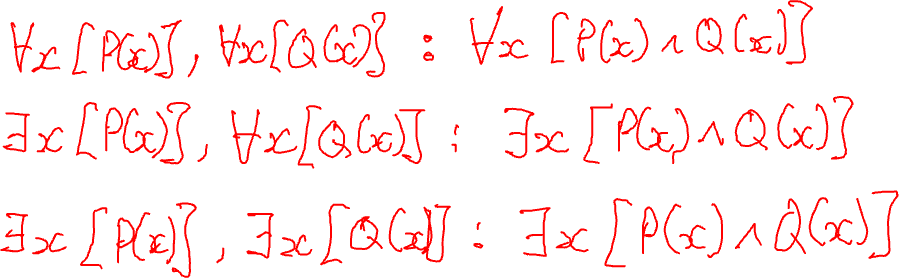 ∀x[P(x)], ∀x[Q(x)] : ∀x[P(x)∧Q(x)]
∃x[P(x)], ∀x[Q(x)] : ∃x[P(x)∧Q(x)]
∃x[P(x)], ∃x[Q(x)] : ∃x[P(x)∧Q(x)]